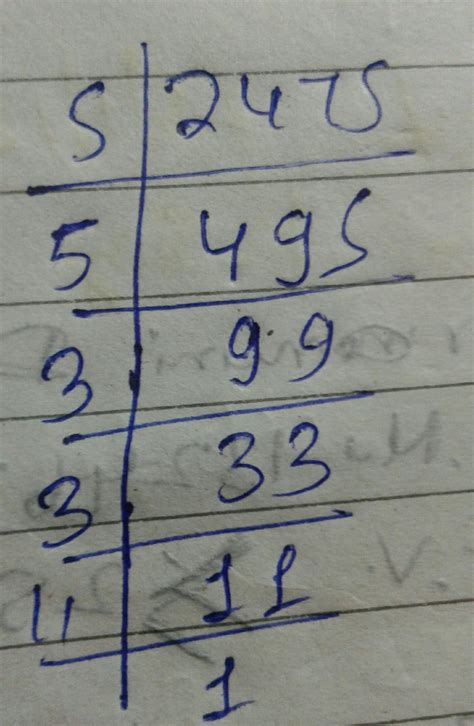 5 2475
5 495
3 99
3 33
11 11
1